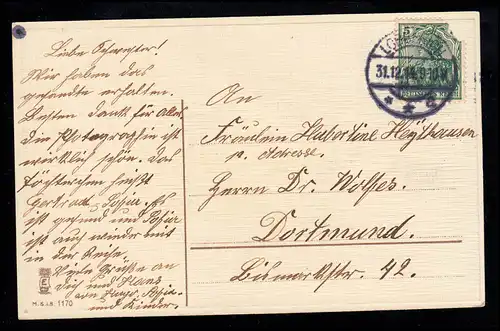 Liebe Schwester!
Wir haben das
gesandte erhalten.
Besten Dank für Alles
die Photographie ist
wirklich schön. Das
Töchterchen heißt
Gertrud Sofia. Es
ist gesund und Sofia
ist auch wieder mit
in der Reihe.
Viele Grüße an
Dich und Hans
von Hugo, Sofia
und Kinder.
M.S.i.B. 1170
5
31.12.14. 9-10 V
An
Fräulein Hubertine Heythausen
p. Adresse.
Herrn Dr. Wolfes.
Dortmund.
Bismarkstr. 42.